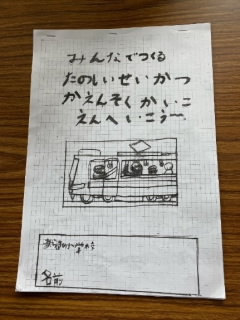 みんなでつくる
たのしいせいかつ
かえんそくかいこ
えんへいこう〜
名前